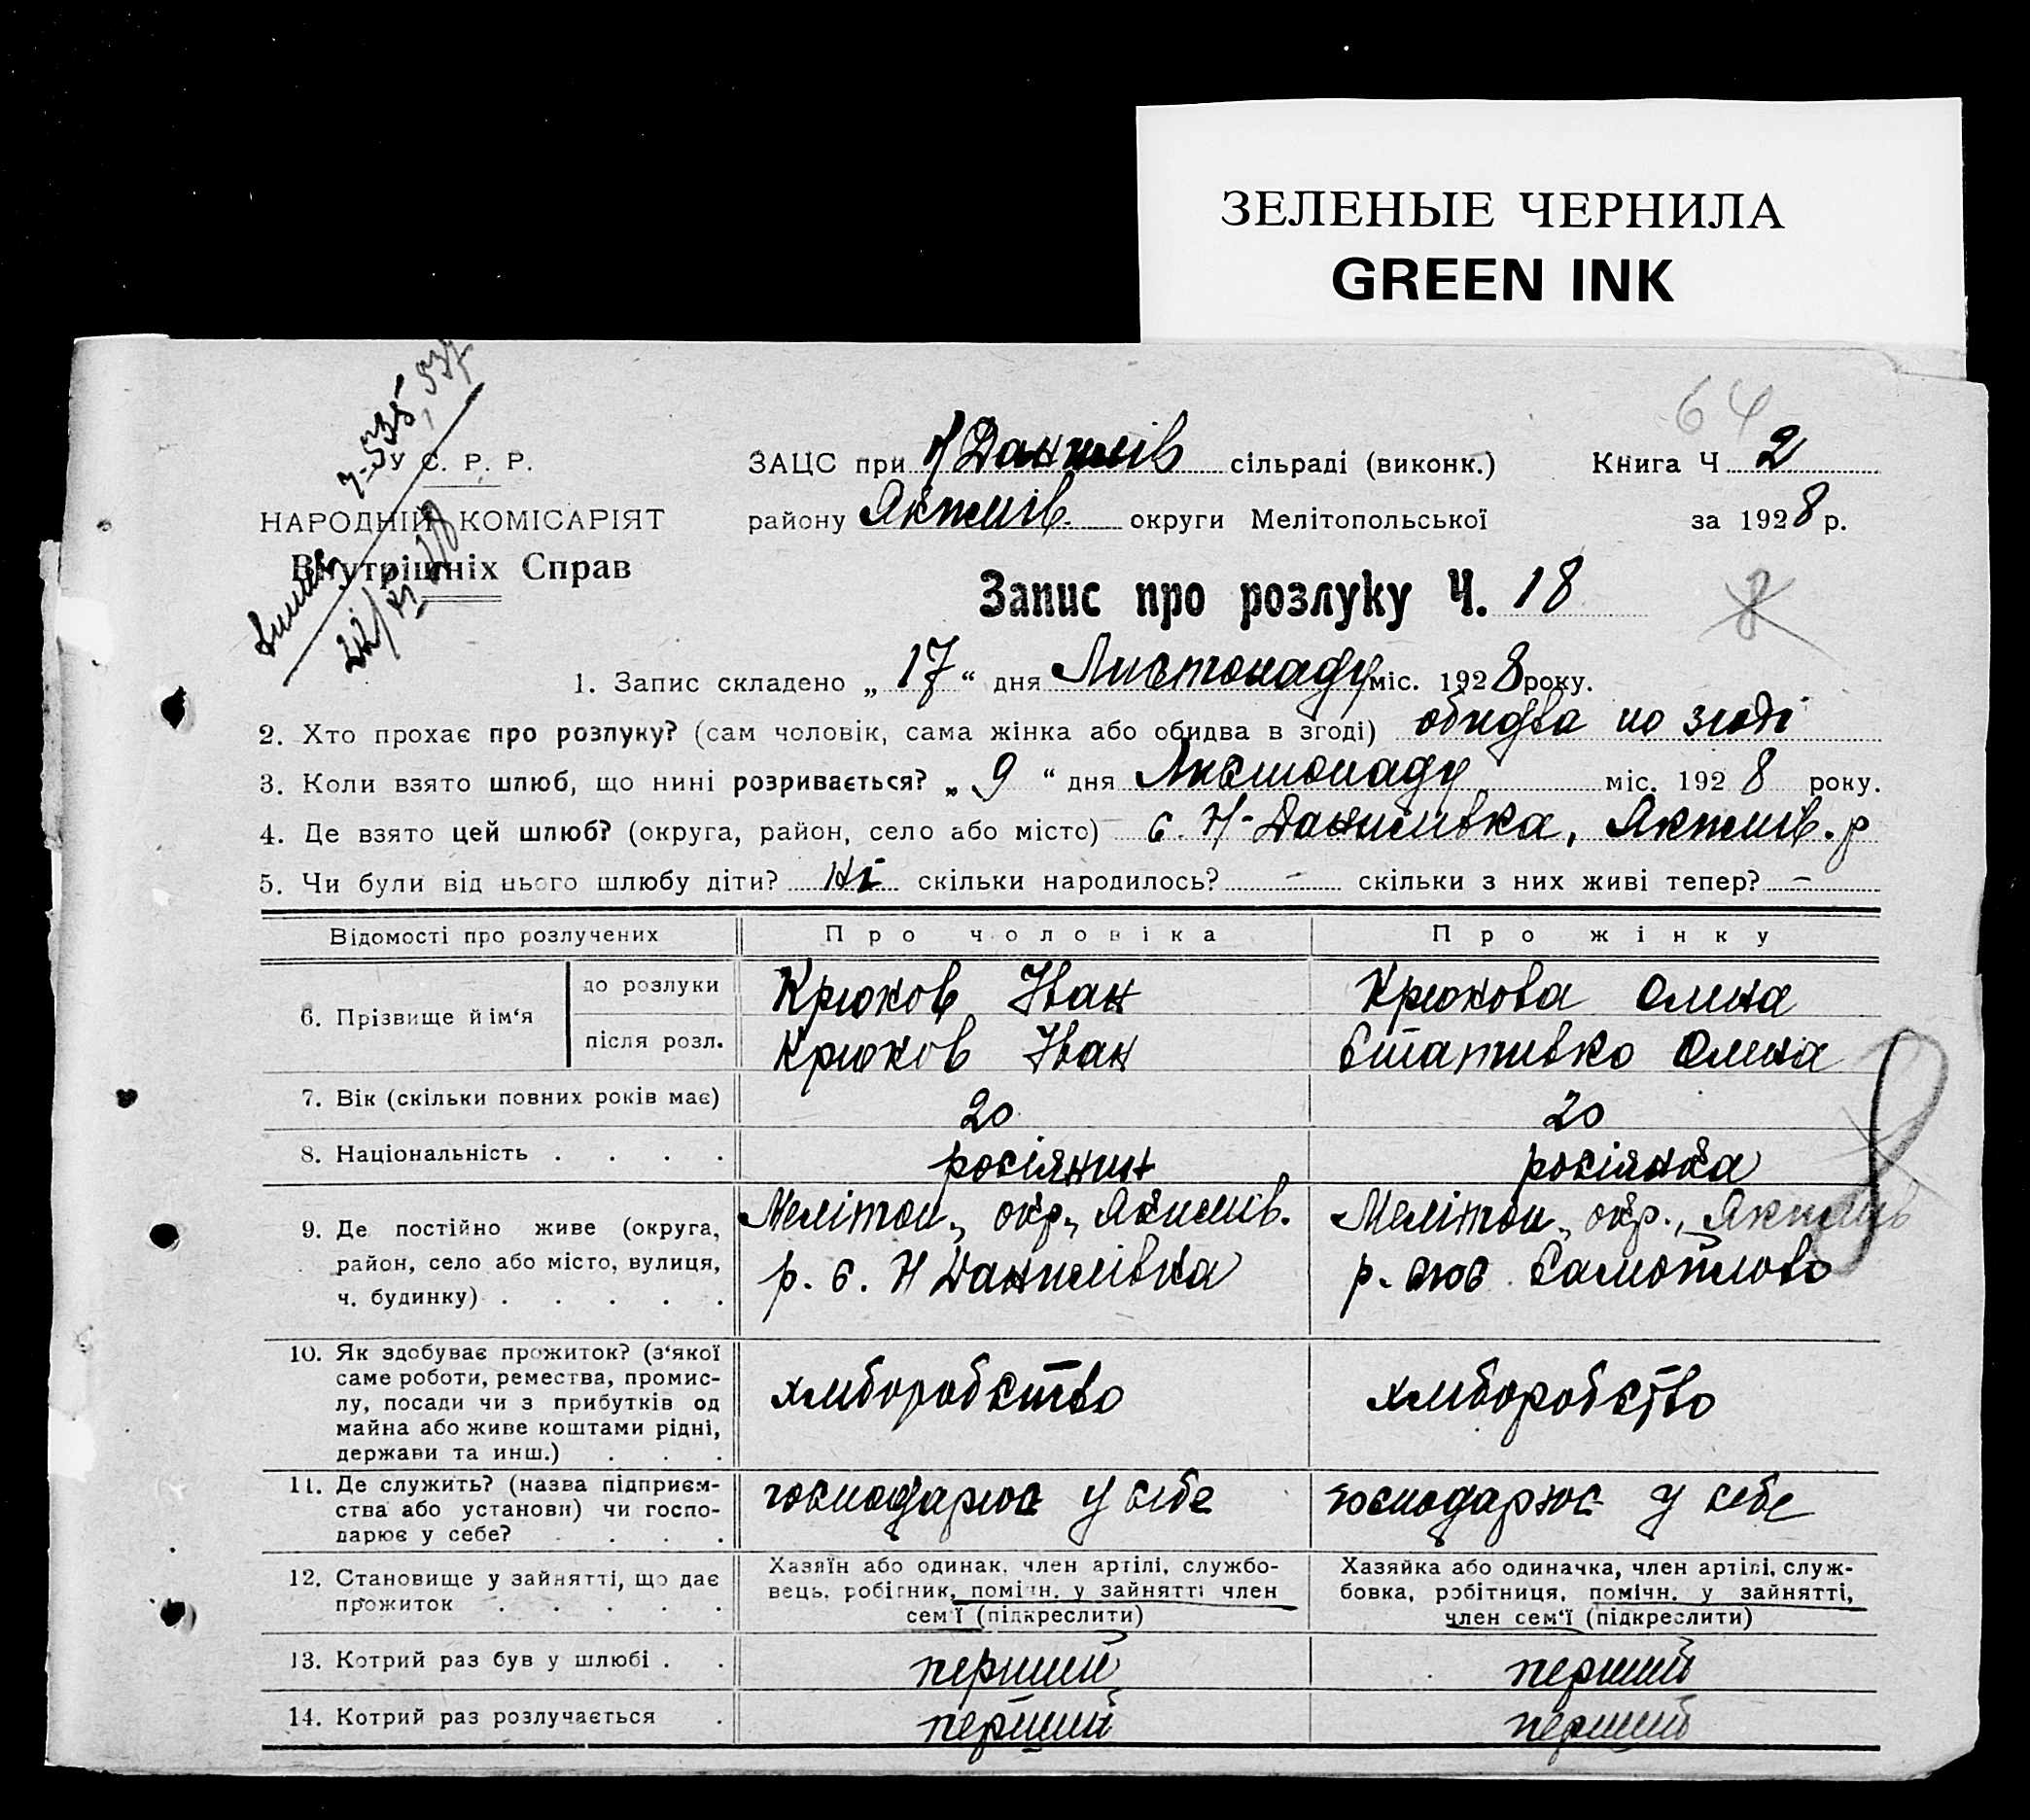 ЗЕЛЕНЫЕ ЧЕРНИЛА
GREEN INK
64
7-535, 537
У С. Р. Р.
НАРОДНІЙ КОМІСАРІЯТ
Внутрішніх Справ
ЗАЦС при Н Данилів сільраді (виконк.) Книга Ч 2
району Якимів. округи Мелітопольської за 1928 р.
Запис про розлуку Ч. 18
8
1. Запис складено „ 17 “ дня Листопаду міс. 1928 року.
2. Хто прохає про розлуку? (сам чоловік, сама жінка або обидва в згоді) обидва по згоді
3. Коли взято шлюб, що нині розривається? „ 9 “ дня Листопаду міс. 1928 року.
4. Де взято цей шлюб? (округа, район, село або місто) с. Н-Данилівка, Якимів. р
5. Чи були від цього шлюбу діти? ні скільки народилось? – скільки з них живі тепер? –
Відомості про розлучених Про чоловіка Про жінку
6. Прізвище й ім‘я
до розлуки Крюков Іван Крюкова Олина
після розл. Крюков Іван Статівко Олина
7. Вік (скільки повних років має) 20 20
8. Національність . . . . росіянин росіянка
9. Де постійно живе (округа, Мелітоп. окр., Якимів. Мелітоп. окр., Якимів
район, село або місто, вулиця, р. с. Н Данилівка р.
ч. будинку) . . . . .
8
10. Як здобуває прожиток? (з‘якої
саме роботи, ремества, промис-
лу, посади чи з прибутків од хліборобство хліборобство
майна або живе коштами рідні,
держави та инш.) . . .
11. Де служить? (назва підприєм- господарює у себе господарює у себе
ства або установи) чи госпо-
дарює у себе? . . . .
12. Становище у зайнятті, що дає
прожиток . . . . .
Хазяїн або одинак, член артілі, службо-
вець, робітник, помічн. у зайнятті член
сем‘ї (підкреслити)
Хазяйка або одиначка, член артілі, служ-
бовка, робітниця, помічн. у зайнятті,
член сем‘ї (підкреслити)
13. Котрий раз був у шлюбі . . перший перший
14. Котрий раз розлучається . перший перший